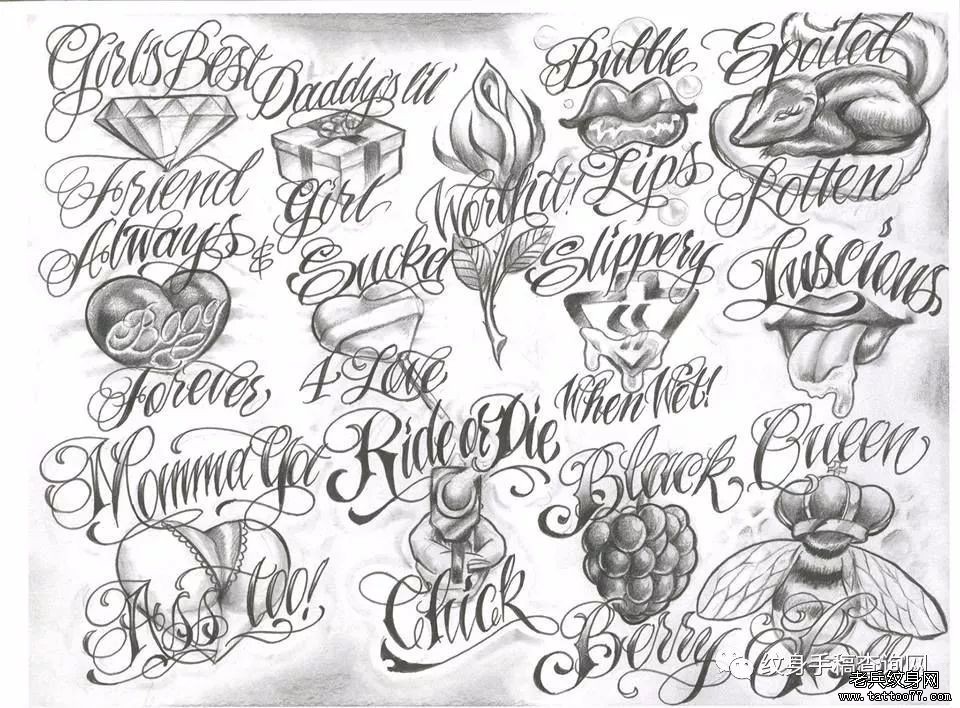 Girl's Best
Friend
Daddy's lil'
Girl
Worth it!
Bubble
Lips
Spoiled
Rotten
Always
&
Booy
Forever
Sucka
4 Love
Slippery
When Wet!
Luscious
Momma Ya
Ass too!
Ride or Die
Chick
Black
Berry
Queen
纹身手稿查询网
老兵纹身网
www.tattoo77.com